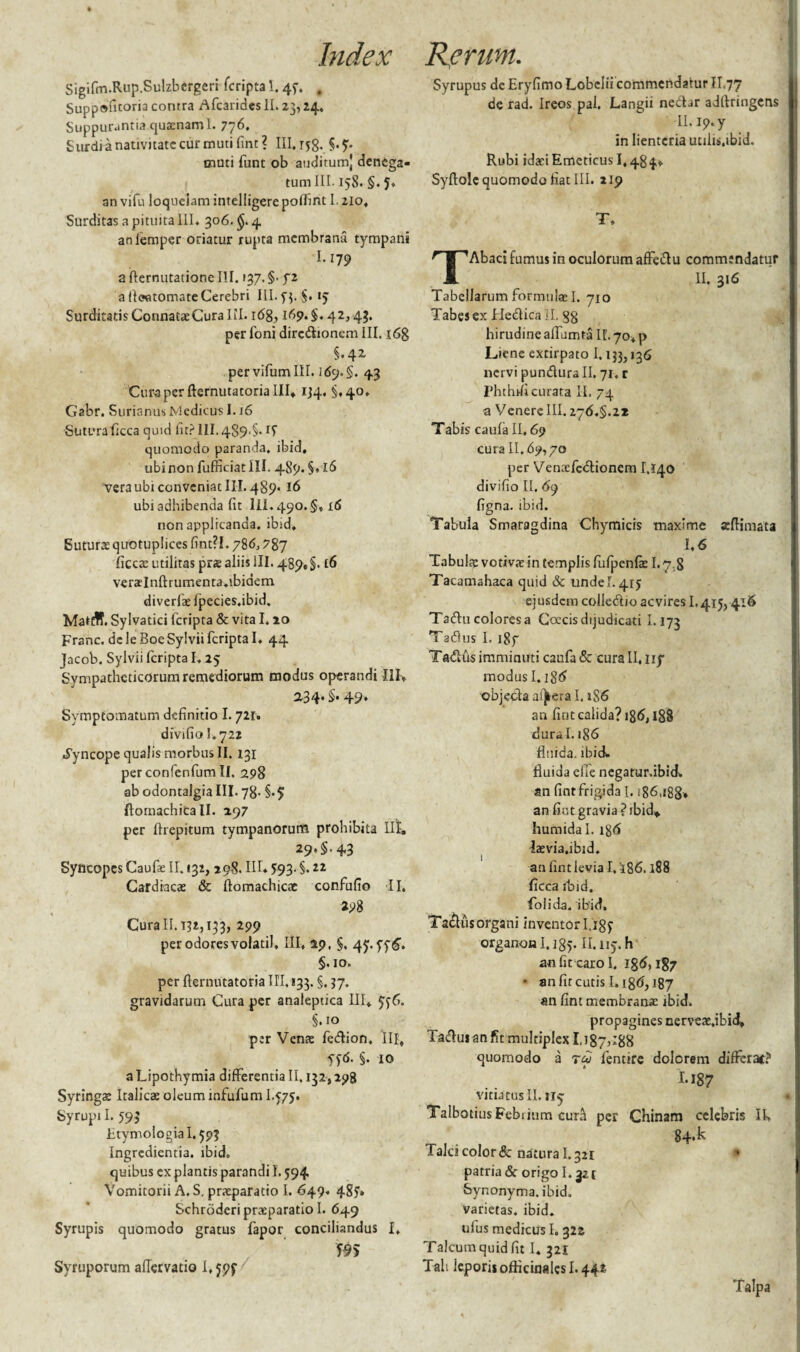 Index Rerum.
Sigiſm.Rup.Sulzbergeri ſcripta I. 45.
Suppoſitoria contra Aſcarides II. 23,24.
Suppurantia quænam I. 776.
Surdi à nativitate cur muti ſint? III. 158. §. 5.
muti ſunt ob auditum denega-
tum III. 158. §. 5.
an viſu loquelam intelligere poſſint I. 210.
Surditas a pituita III. 306. §. 4
an ſemper oriatur rupta membranâ tympani
I. 179
a ſternutatione III. 137. §. 52
a ſteatomate Cerebri III. 53. §. 15
Surditatis Connatæ Cura III. 168, 169. §. 42, 43.
per ſoni directionem III. 168
§. 42
per viſum III. 169. §. 43
Cura per ſternutatoria III. 134. §. 40.
Gabr. Surianus Medicus I. 16
Sutura ſicca quid ſit? III. 489. §. 15
quomodo paranda. ibid.
ubi non ſufficiat III. 489. §. 16
vera ubi conveniat III. 489. 16
ubi adhibenda ſit III. 490. §. 16
non applicanda. ibid.
Suturæ quotuplices ſint? I. 786, 787
ſiccæ utilitas præ aliis III. 489. §. 16
veræ Inſtrumenta. ibidem
diverſæ ſpecies. ibid.
Matth. Sylvatici ſcripta & vita I. 20
Franc. de le Boe Sylvii ſcripta I. 44
Jacob. Sylvii ſcripta I. 25
Sympatheticorum remediorum modus operandi III.
234. §. 49.
Symptomatum definitio I. 721.
diviſio I. 722
Syncope qualis morbus II. 131
per conſenſum II. 298
ab odontalgia III. 78. §. 5
ſtomachica II. 297
per ſtrepitum tympanorum prohibita III.
29. §. 43
Syncopes Cauſæ II. 132, 298. III. 593. §. 22
Cardiacæ & ſtomachicæ confuſio II.
298
Cura II. 132, 133, 299
per odores volatil. III. 29. §. 45. 556.
§. 10.
per ſternutatoria III. 133. §. 37.
gravidarum Cura per analeptica III. 556.
§. 10
per Venæ ſection. III.
556. §. 10
a Lipothymia differentia II. 132, 298
Syringæ Italicæ oleum infuſum I. 575.
Syrupi I. 593
Etymologia I. 593
Ingredientia. ibid.
quibus ex plantis parandi I. 594
Vomitorii A. S. præparatio I. 649. 485.
Schröderi præparatio I. 649
Syrupis quomodo gratus ſapor conciliandus I.
595
Syruporum aſſervatio I. 595
Syrupus de Eryſimo Lobelii commendatur II. 77
de rad. Ireos pal. Langii nectar adſtringens
II. 19. y
in lienteria utilis. ibid.
Rubi idæi Emeticus I. 484.
Syſtole quomodo fiat III. 219
T.
TAbaci fumus in oculorum affectu commendatur
II. 316
Tabellarum formulæ I. 710
Tabes ex Hectica II. 88
hirudine aſſumta II. 70. p
Liene extirpato I. 133, 136
nervi punctura II. 71. r
Phthiſi curata II. 74
a Venere III. 276. §. 22
Tabis cauſa II. 69
cura II. 69, 70
per Venæſectionem I. 140
diviſio II. 69
ſigna. ibid.
Tabula Smaragdina Chymicis maxime æſtimata
I. 6
Tabulæ votivæ in templis ſuſpenſæ I. 7.8
Tacamahaca quid & unde I. 415
ejusdem collectio acvires I. 415, 416
Tactu colores a Cœcis dijudicati I. 173
Tactus I. 185
Tactûs imminuti cauſa & cura II. 115
modus I. 186
objecta aſpera I. 186
an ſint calida? 186, 188
dura I. 186
fluida. ibid.
fluida eſſe negatur. ibid.
an ſint frigida I. 186, 188.
an ſint gravia? ibid.
humida I. 186
lævia. ibid.
an ſint levia I. 186. 188
ſicca ibid.
ſolida. ibid.
Tactûs organi inventor I. 185
organon I. 185. II. 115. h
an ſit caro I. 186, 187
an ſit cutis I. 186, 187
an ſint membranæ ibid.
propagines nerveæ. ibid.
Tactus an ſit multiplex I. 187, 188
quomodo à τῷ ſentire dolorem differat?
I. 187
vitiatus II. 115
Talbotius Febrium curâ per Chinam celebris II.
84. k
Talci color & natura I. 321
patria & origo I. 321
Synonyma. ibid.
Varietas. ibid.
uſus medicus I. 322
Talcum quid ſit I. 321
Tali leporis officinales I. 442
Talpa